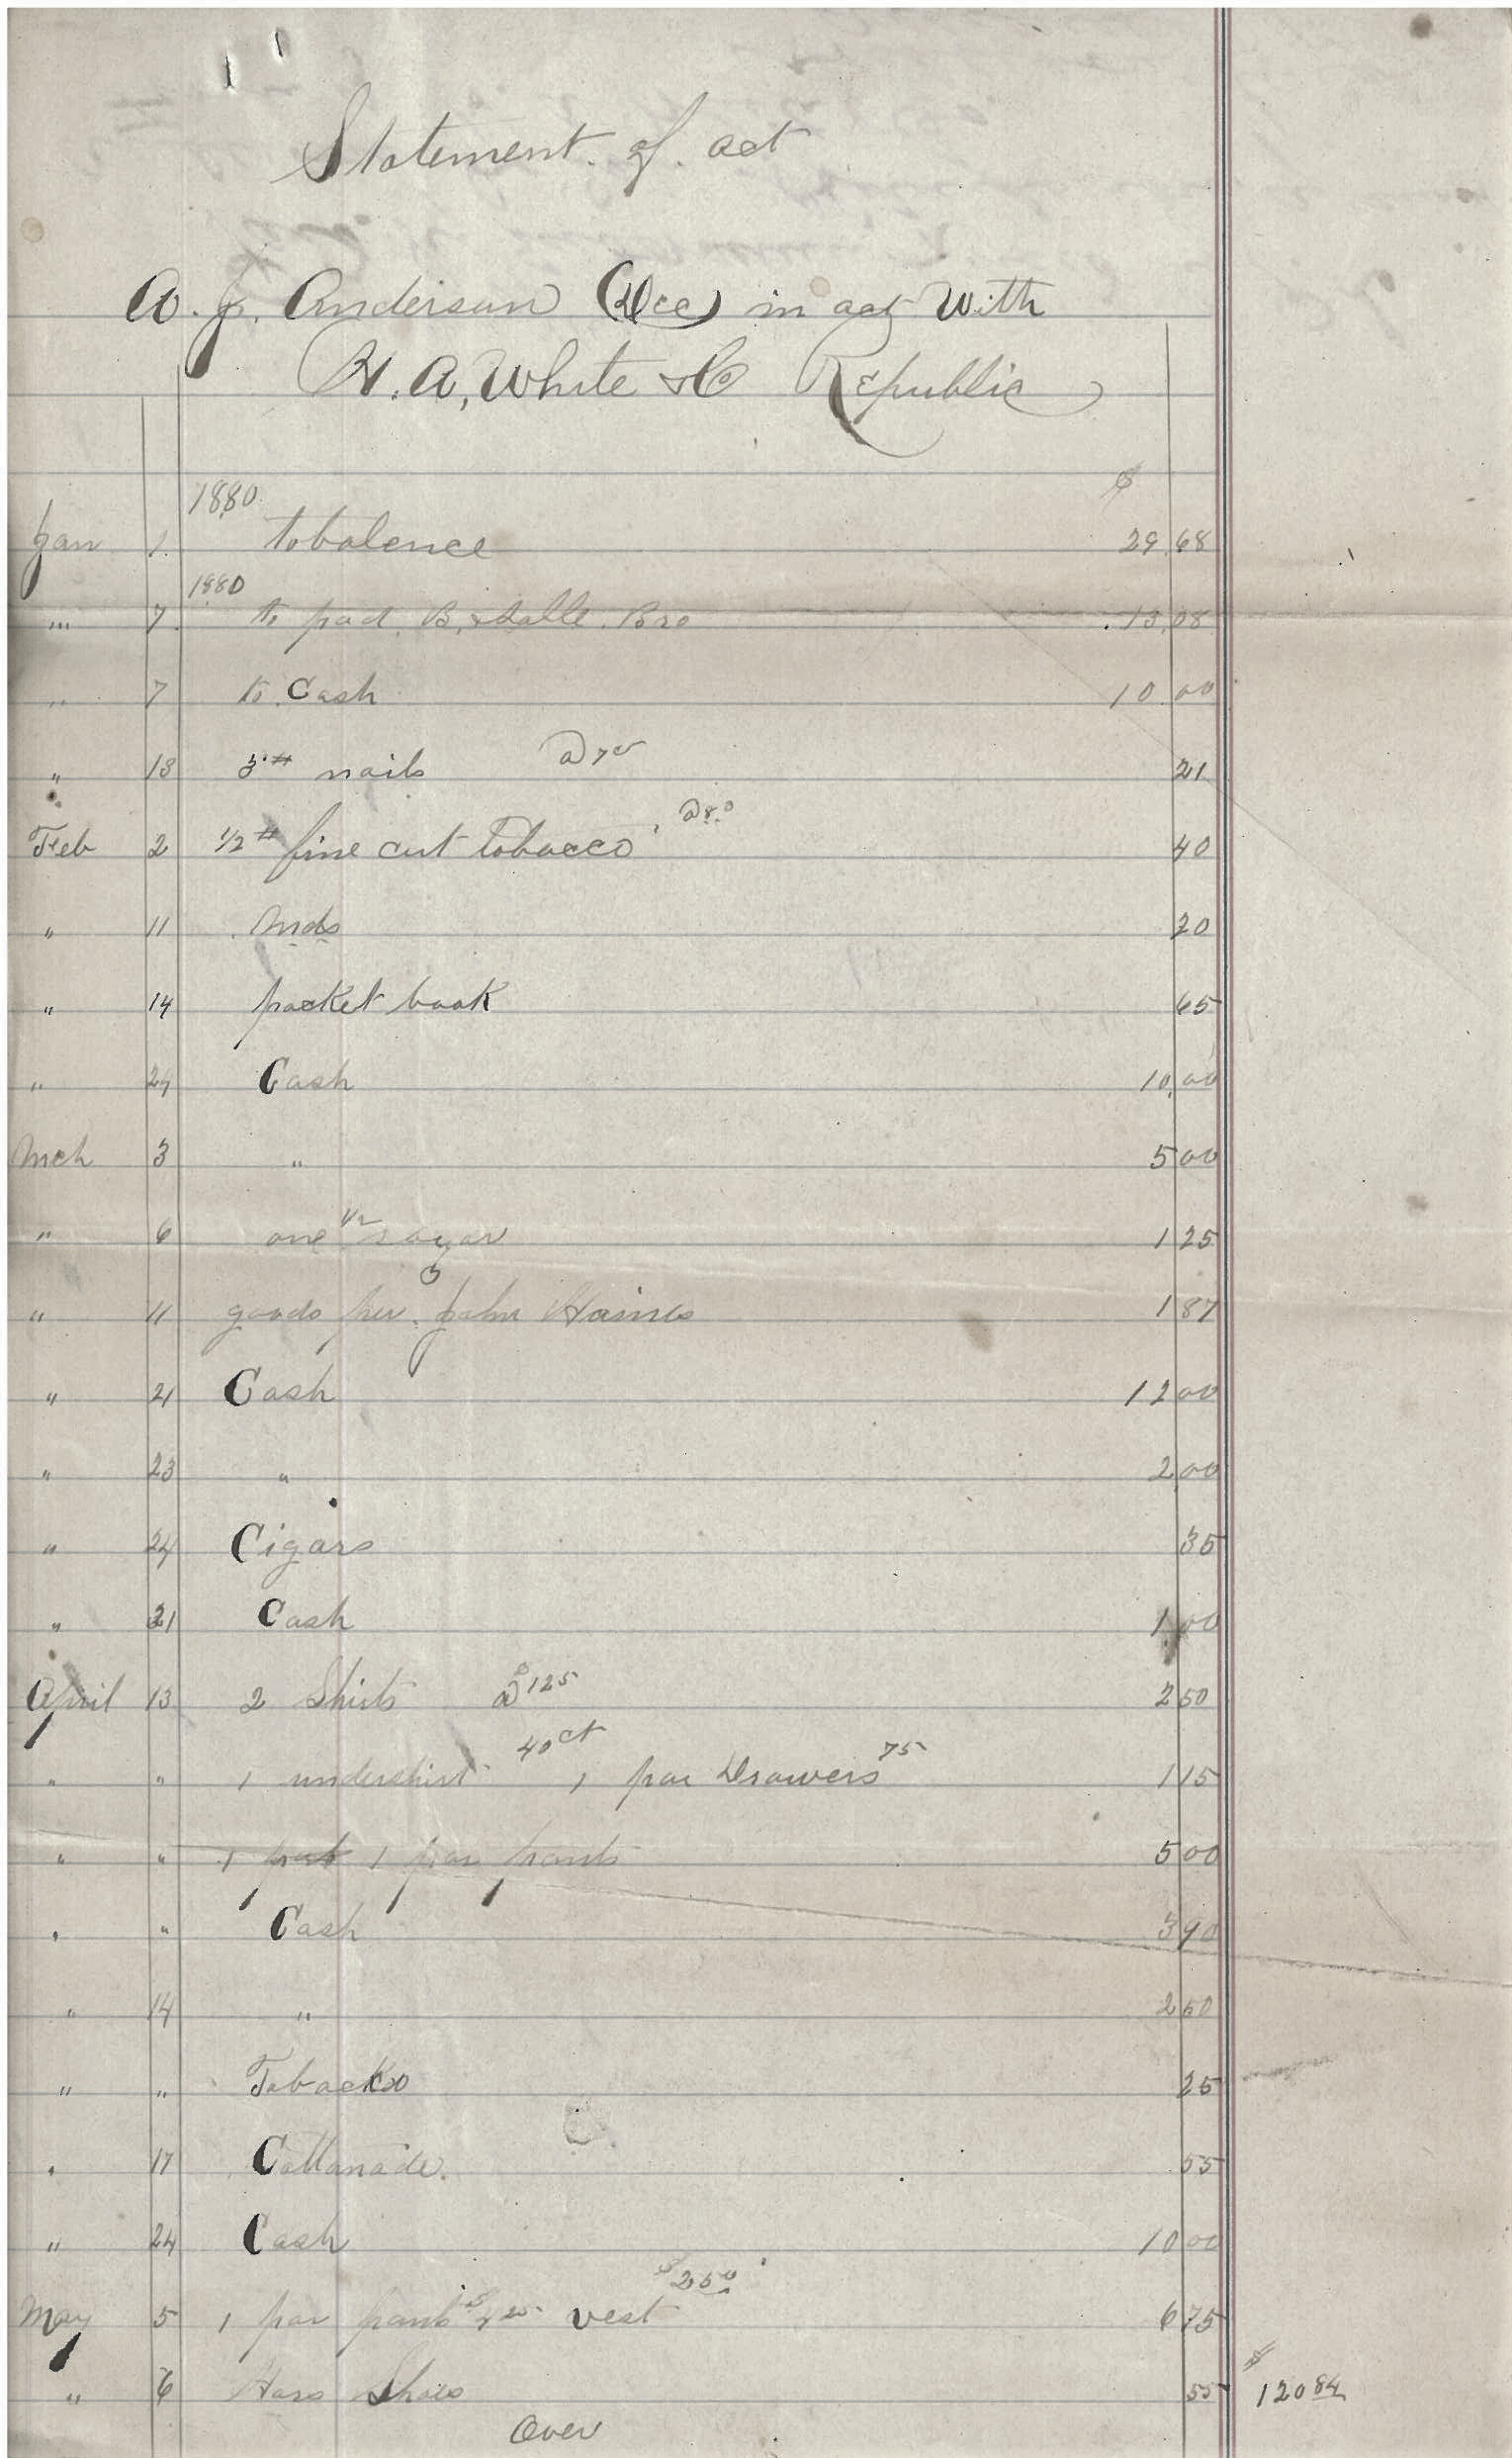 Statement. of. act
A. J. Anderson (Dec) in act With
H. A, White & Co Republic
$
1880
Jan 1. to balence 29.68
1880
" 7. to pad. B. & Bro 13.08
" 7 to Cash 10.00
" 13 3# nails @ 7c 21
Feb 2 1/2# fine cut tobacco @ 80 40
" 11 Mds 20
" 14 pocket book 65
" 24 Cash 10.00
Mch 3 " 5 00
" 6 one 1/2 sugar 1 25
" 11 goods per. John Haines 1 87
" 21 Cash 12 00
" 23 " 2 00
" 24 Cigars 35
" 31 Cash 1 00
April 13 2 Shirts @ $125 2 50
" " 1 undershirt 40ct 1 par Drawers 75 1 15
" " 1 1 par pants 5 00
" " Cash 3 90
" 14 " 2 50
" " Tobackoo 25
" 17 Cottanade. 55
" 24 Cash 10 00
May 5 1 par pants $4 25 vest $2 50 6 75
" 6 Hars Shoes 55 $120 84
Over